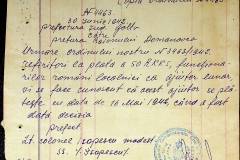 30 Junie 1942
prefectura jud. Golta
către
pretura raionului Domanovca
Urmare ordinului nostru No 3463/1942.
referitor la plata a 50 RKKS, funcționa-
rilor români localnici ca ajutor lunar,
vi se face cunoscut că acest ajutor se plă-
tește cu data de 16 Mai 1942, când a fost
dată decizia
prefect
Lt. colonel Isopescu modest